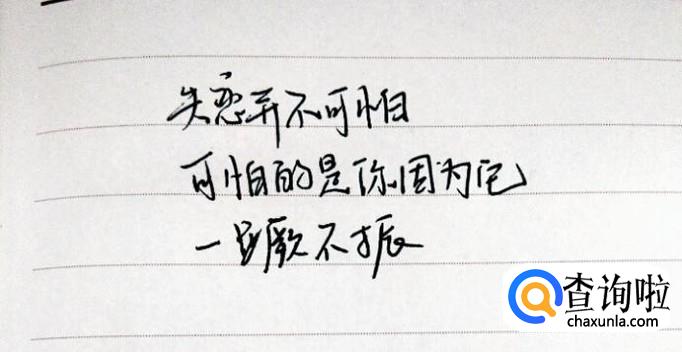 失恋并不可怕
可怕的是你因为它
一蹶不振
查询啦
chaxunla.com